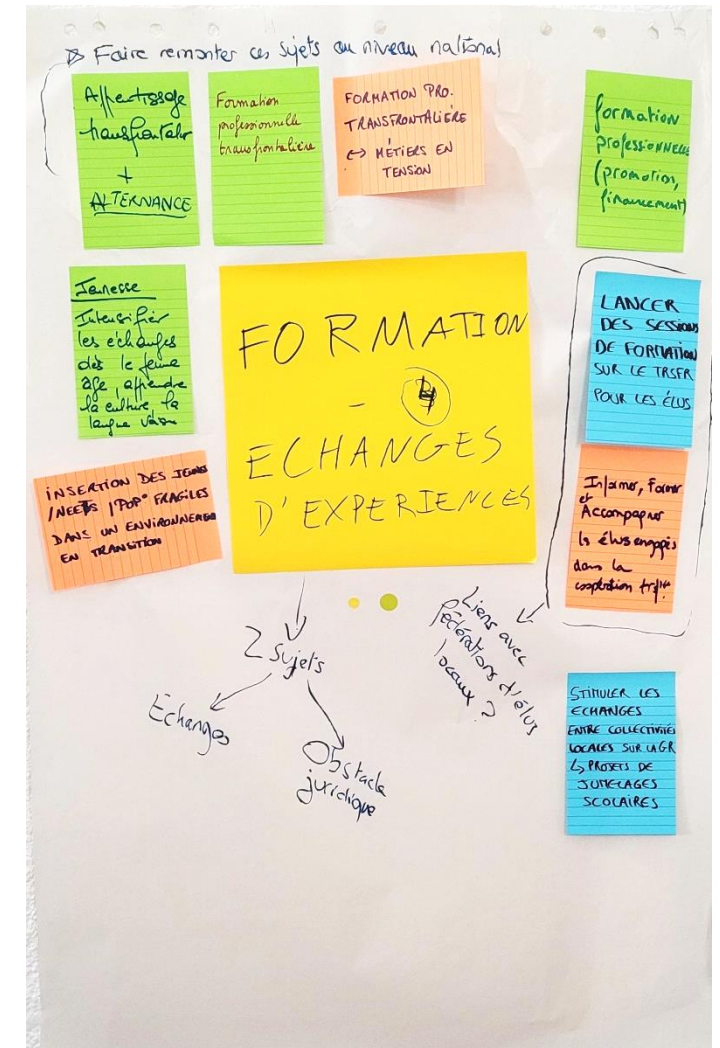 Faire remonter ces sujets au niveau national
Apprentissage
transfrontalier
+
ALTERNANCE
Formation
professionnelle
transfrontalière
FORMATION PRO.
TRANSFRONTALIÈRE
↔ MÉTIERS EN
TENSION
formation
professionnelle
(promotion,
financement)
Jeunesse
Intensifier
les échanges
dès le jeune
âge, apprendre
la culture, la
langue
FORMATION
-
ECHANGES
D'EXPERIENCES
LANCER
DES SESSIONS
DE FORMATION
SUR LE TRSFR
POUR LES ÉLUS
INSERTION DES JEUNES
/NEETS / POP° FRAGILES
DANS UN ENVIRONNEMENT
EN TRANSITION
Informer, Former
et
Accompagner
les élus engagés
dans la
coopération
2 sujets
Echanges
Obstacle
juridique
Liens avec
fédérations d'élus
locaux ?
STIMULER LES
ECHANGES
ENTRE COLLECTIVITÉS
LOCALES SUR LA GR
↳ PROJETS DE
JUMELAGES
SCOLAIRES